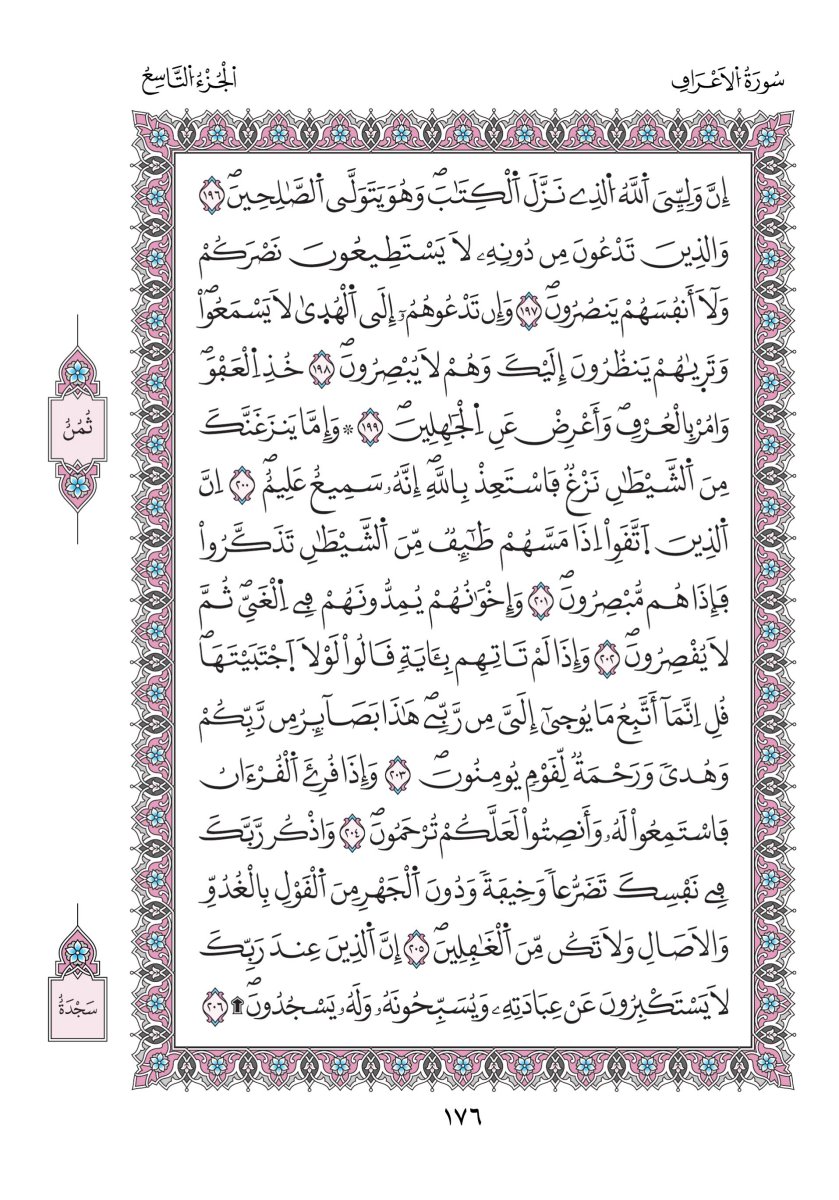 سُورَةُ اُ۬لَاعْرَافِ
اَ۬لْجُزْءُ اُ۬لتَّاسِعُ
إِنَّ وَلِيِّيَ اَ۬للَّهُ اُ۬لذِے نَزَّلَ اَ۬لْكِتَٰبَۖ وَهُوَ يَتَوَلَّي اَ۬لصَّٰلِحِينَۖ ١٩٦
وَالذِينَ تَدْعُونَ مِن دُونِهِۦ لَا يَسْتَطِيعُونَ نَصْرَكُمْ
وَلَآ أَنفُسَهُمْ يَنصُرُونَۖ ١٩٧ وَإِن تَدْعُوهُمُۥٓ إِلَي اَ۬لْهُد۪يٰ لَا يَسْمَعُواْۖ
وَتَر۪يٰهُمْ يَنظُرُونَ إِلَيْكَ وَهُمْ لَا يُبْصِرُونَۖ ١٩٨ خُذِ اِ۬لْعَفْوَۖ
وَامُرْ بِالْعُرْفِۖ وَأَعْرِضْ عَنِ اِ۬لْجَٰهِلِينَۖ ١٩٩ * وَإِمَّا يَنزَغَنَّكَ
مِنَ اَ۬لشَّيْطَٰنِ نَزْغٞ فَاسْتَعِذْ بِاللَّهِۖ إِنَّهُۥ سَمِيعٌ عَلِيمٌۖ ٢٠٠ اِنَّ
اَ۬لذِينَ اَ۪تَّقَوِاْ اِذَا مَسَّهُمْ طَٰٓئِفٞ مِّنَ اَ۬لشَّيْطَٰنِ تَذَكَّرُواْ
فَإِذَا هُم مُّبْصِرُونَۖ ٢٠١ وَإِخْوَٰنُهُمْ يُمِدُّونَهُمْ فِے اِ۬لْغَيِّۖ ثُمَّ
لَا يُقْصِرُونَۖ ٢٠٢ وَإِذَا لَمْ تَاتِهِم بِـَٔايَةٖ قَالُواْ لَوْلَا اَ۪جْتَبَيْتَهَاۖ
قُلِ اِنَّمَآ أَتَّبِعُ مَا يُوح۪يٰٓ إِلَيَّ مِن رَّبِّےۖ هَٰذَا بَصَآئِرُ مِن رَّبِّكُمْ
وَهُديٗ وَرَحْمَةٞ لِّقَوْمٖ يُومِنُونَۖ ٢٠٣ وَإِذَا قُرِئَ اَ۬لْقُرْءَانُ
فَاسْتَمِعُواْ لَهُۥ وَأَنصِتُواْ لَعَلَّكُمْ تُرْحَمُونَۖ ٢٠٤ وَاذْكُر رَّبَّكَ
فِے نَفْسِكَ تَضَرُّعاٗ وَخِيفَةٗ وَدُونَ اَ۬لْجَهْرِ مِنَ اَ۬لْقَوْلِ بِالْغُدُوِّ
وَالَاصَالِ وَلَا تَكُن مِّنَ اَ۬لْغَٰفِلِينَۖ ٢٠٥ إِنَّ اَ۬لذِينَ عِندَ رَبِّكَ
لَا يَسْتَكْبِرُونَ عَنْ عِبَادَتِهِۦ وَيُسَبِّحُونَهُۥ وَلَهُۥ يَسْجُدُونَۖ ۩ ٢٠٦
ثُمُنُ
سَجْدَةٌ
١٧٦